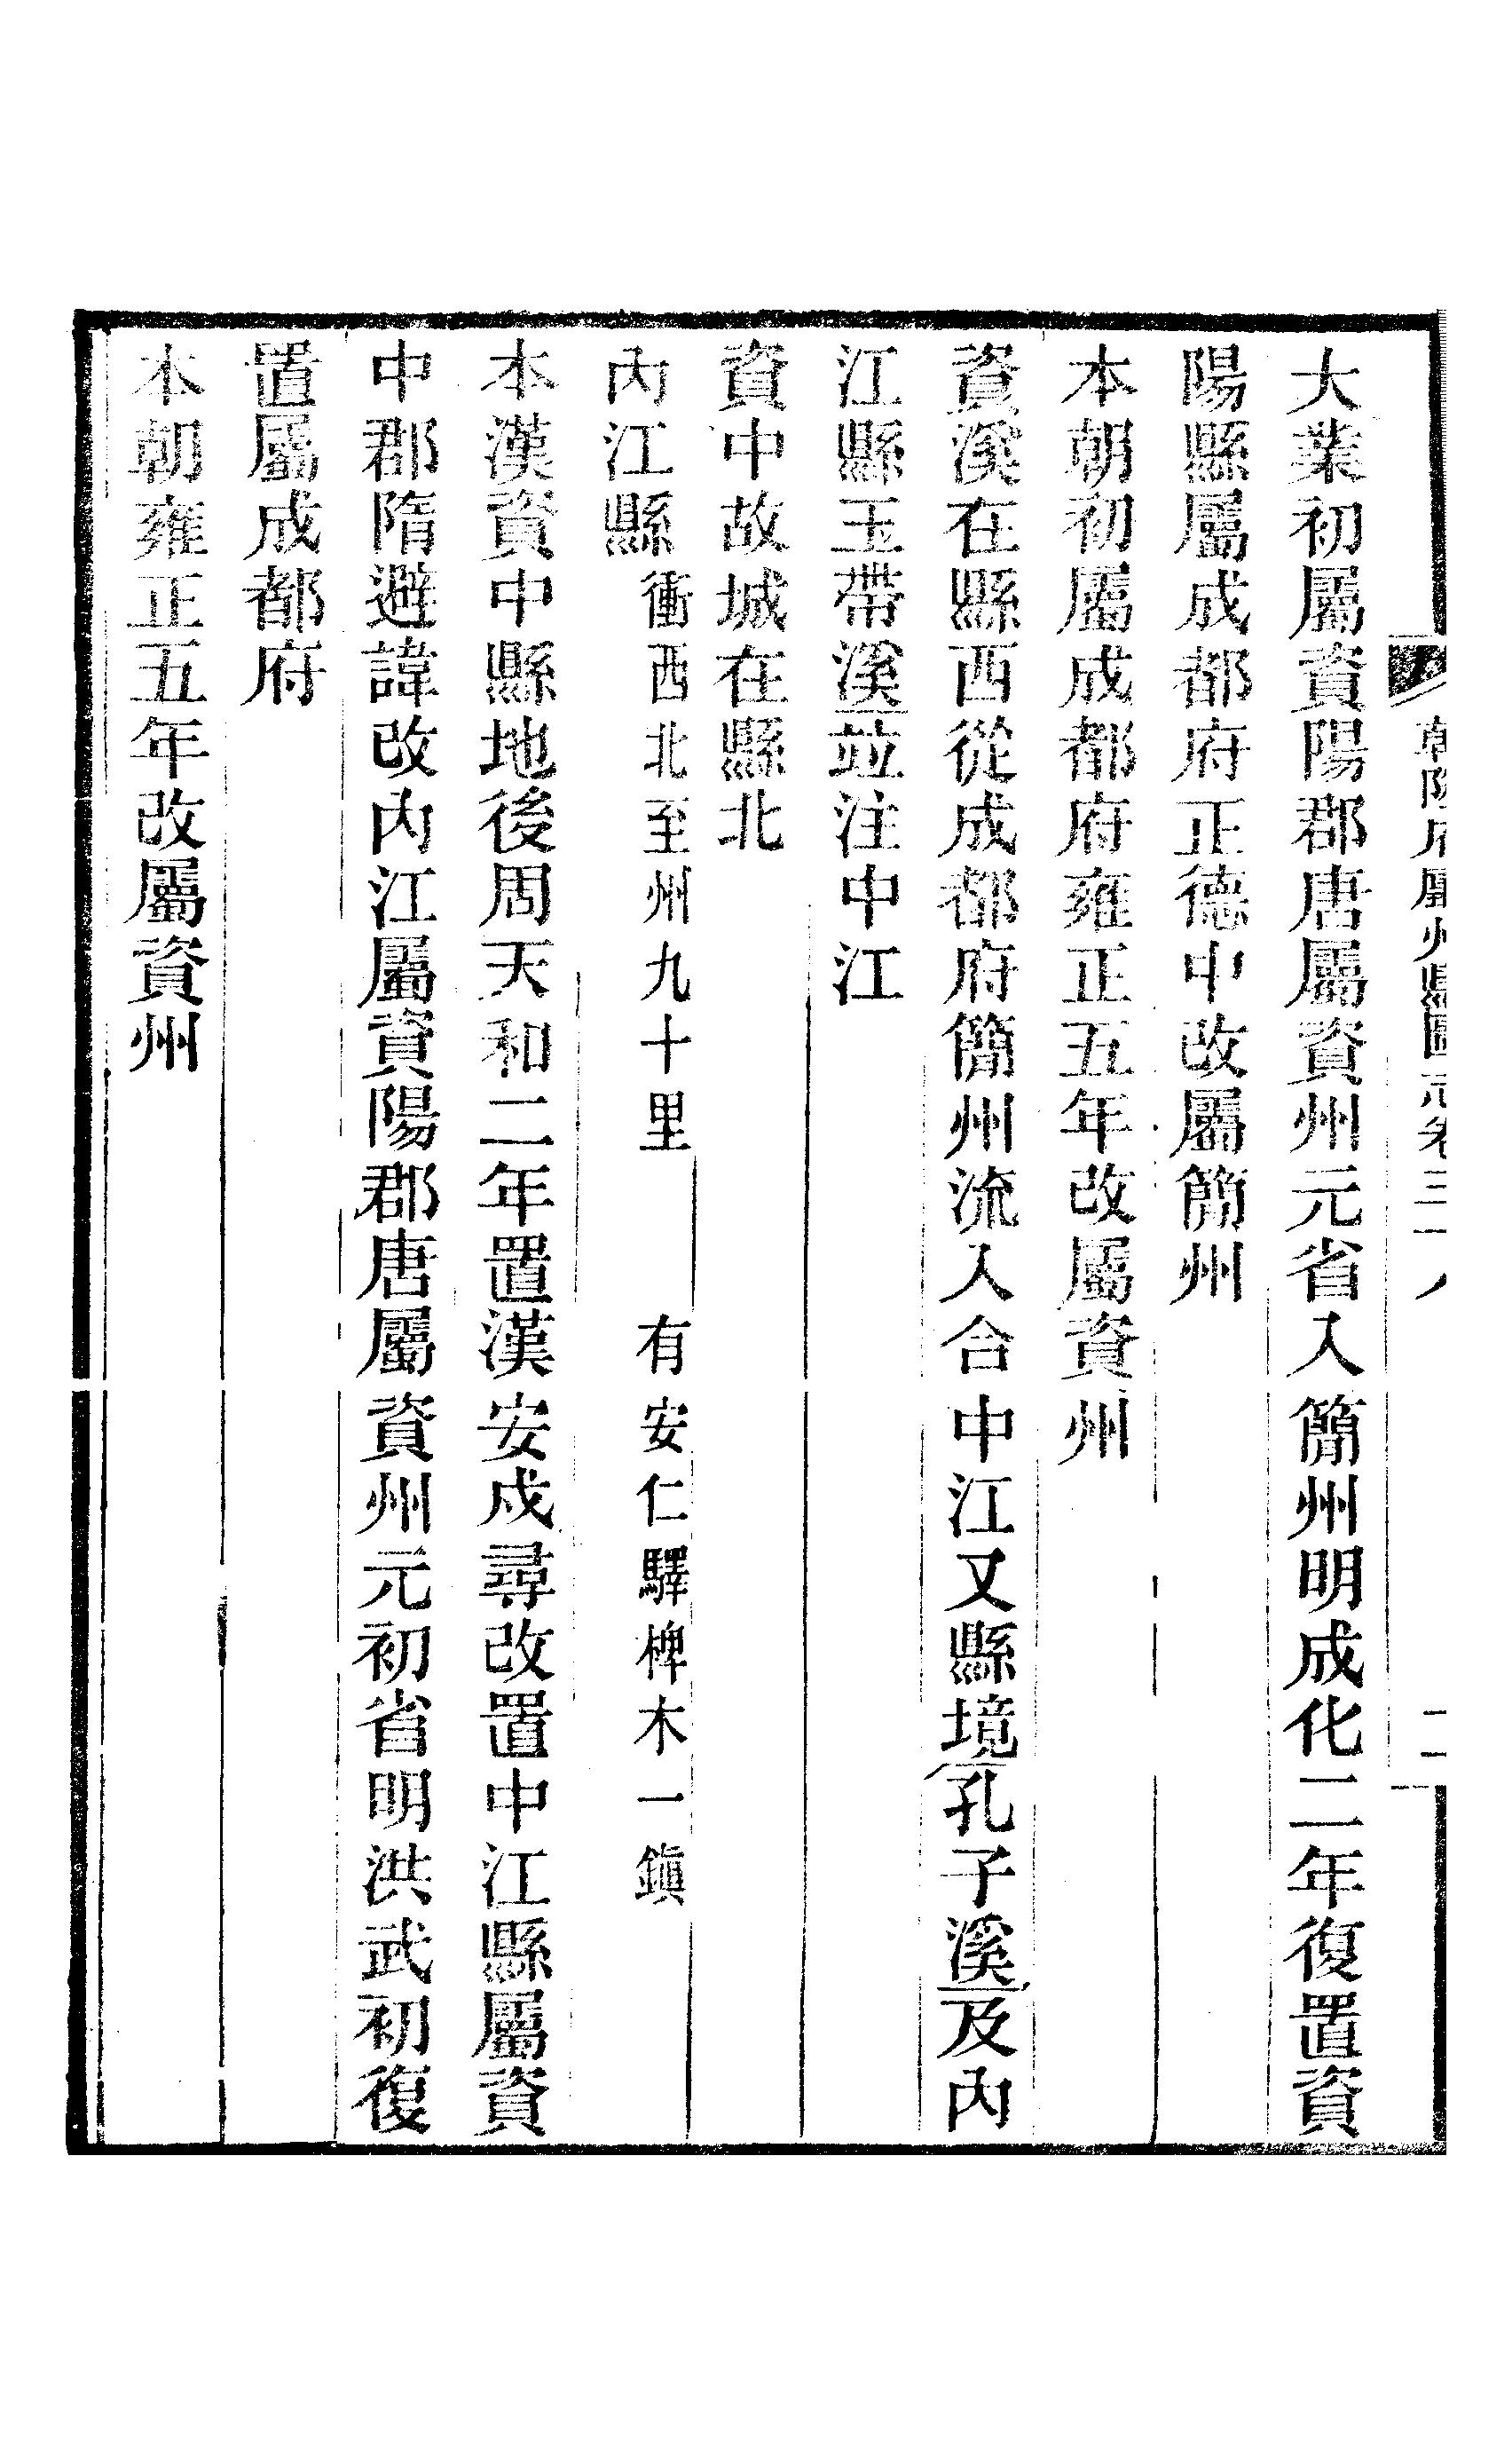 大業初屬資陽郡唐屬資州元省入簡州明成化二年復置資
陽縣屬成都府正德中改屬簡州
本朝初屬成都府雍正五年改屬資州
資溪在縣西從成都府簡州流入合中江又縣境孔子溪及內
江縣玉帶溪竝注中江
資中故城在縣北
內江縣 衝西北至州九十里 有安仁驛椑木一鎭
本漢資中縣地後周天和二年置漢安戍尋改置中江縣屬資
中郡隋避諱改內江屬資陽郡唐屬資州元初省明洪武初復
置屬成都府
本朝雍正五年改屬資州